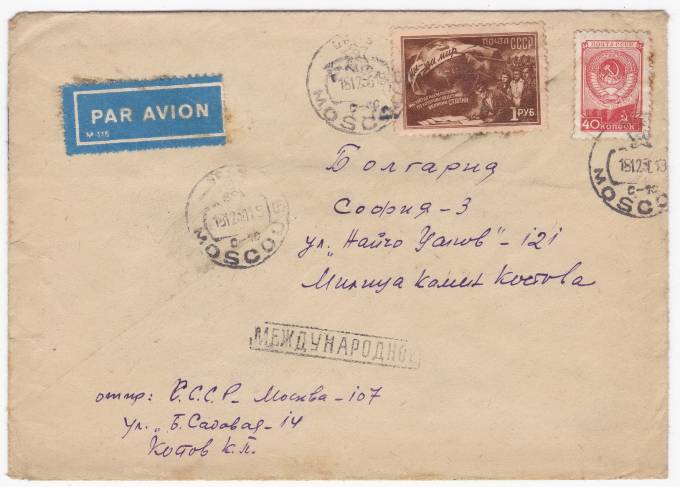 PAR AVION
M-115
ПОЧТА СССР
За мир
СТАЛИН
1 РУБ.
ПОЧТА СССР
40 КОПЕЕК
MOSCOU
MOSCOU
MOSCOU
Болгария
София-3
ул. „Найчо Цанов"-121
Милица Камен Костова
МЕЖДУНАРОДНОЕ
отпр: С.С.С.Р. Москва-107
ул. „Б. Садовая-14
Котов К.П.